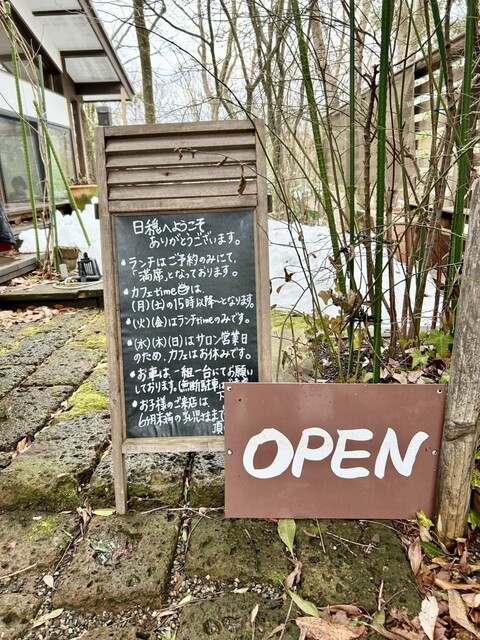 日穏へようこそ
ありがとうございます。
• ランチはご予約のみにて、
「満席」となっております。
• カフェtimeは、
(月)(土)の15時以降〜となります。
• (火)(金)はランチtimeのみです。
• (水)(木)(日)はサロン営業日
のため、カフェはお休みです。
• お車は、一組一台にてお願い
しております。(無断駐車は
• お子様のご来店は、下
6ヶ月未満の乳児まで
頂
OPEN